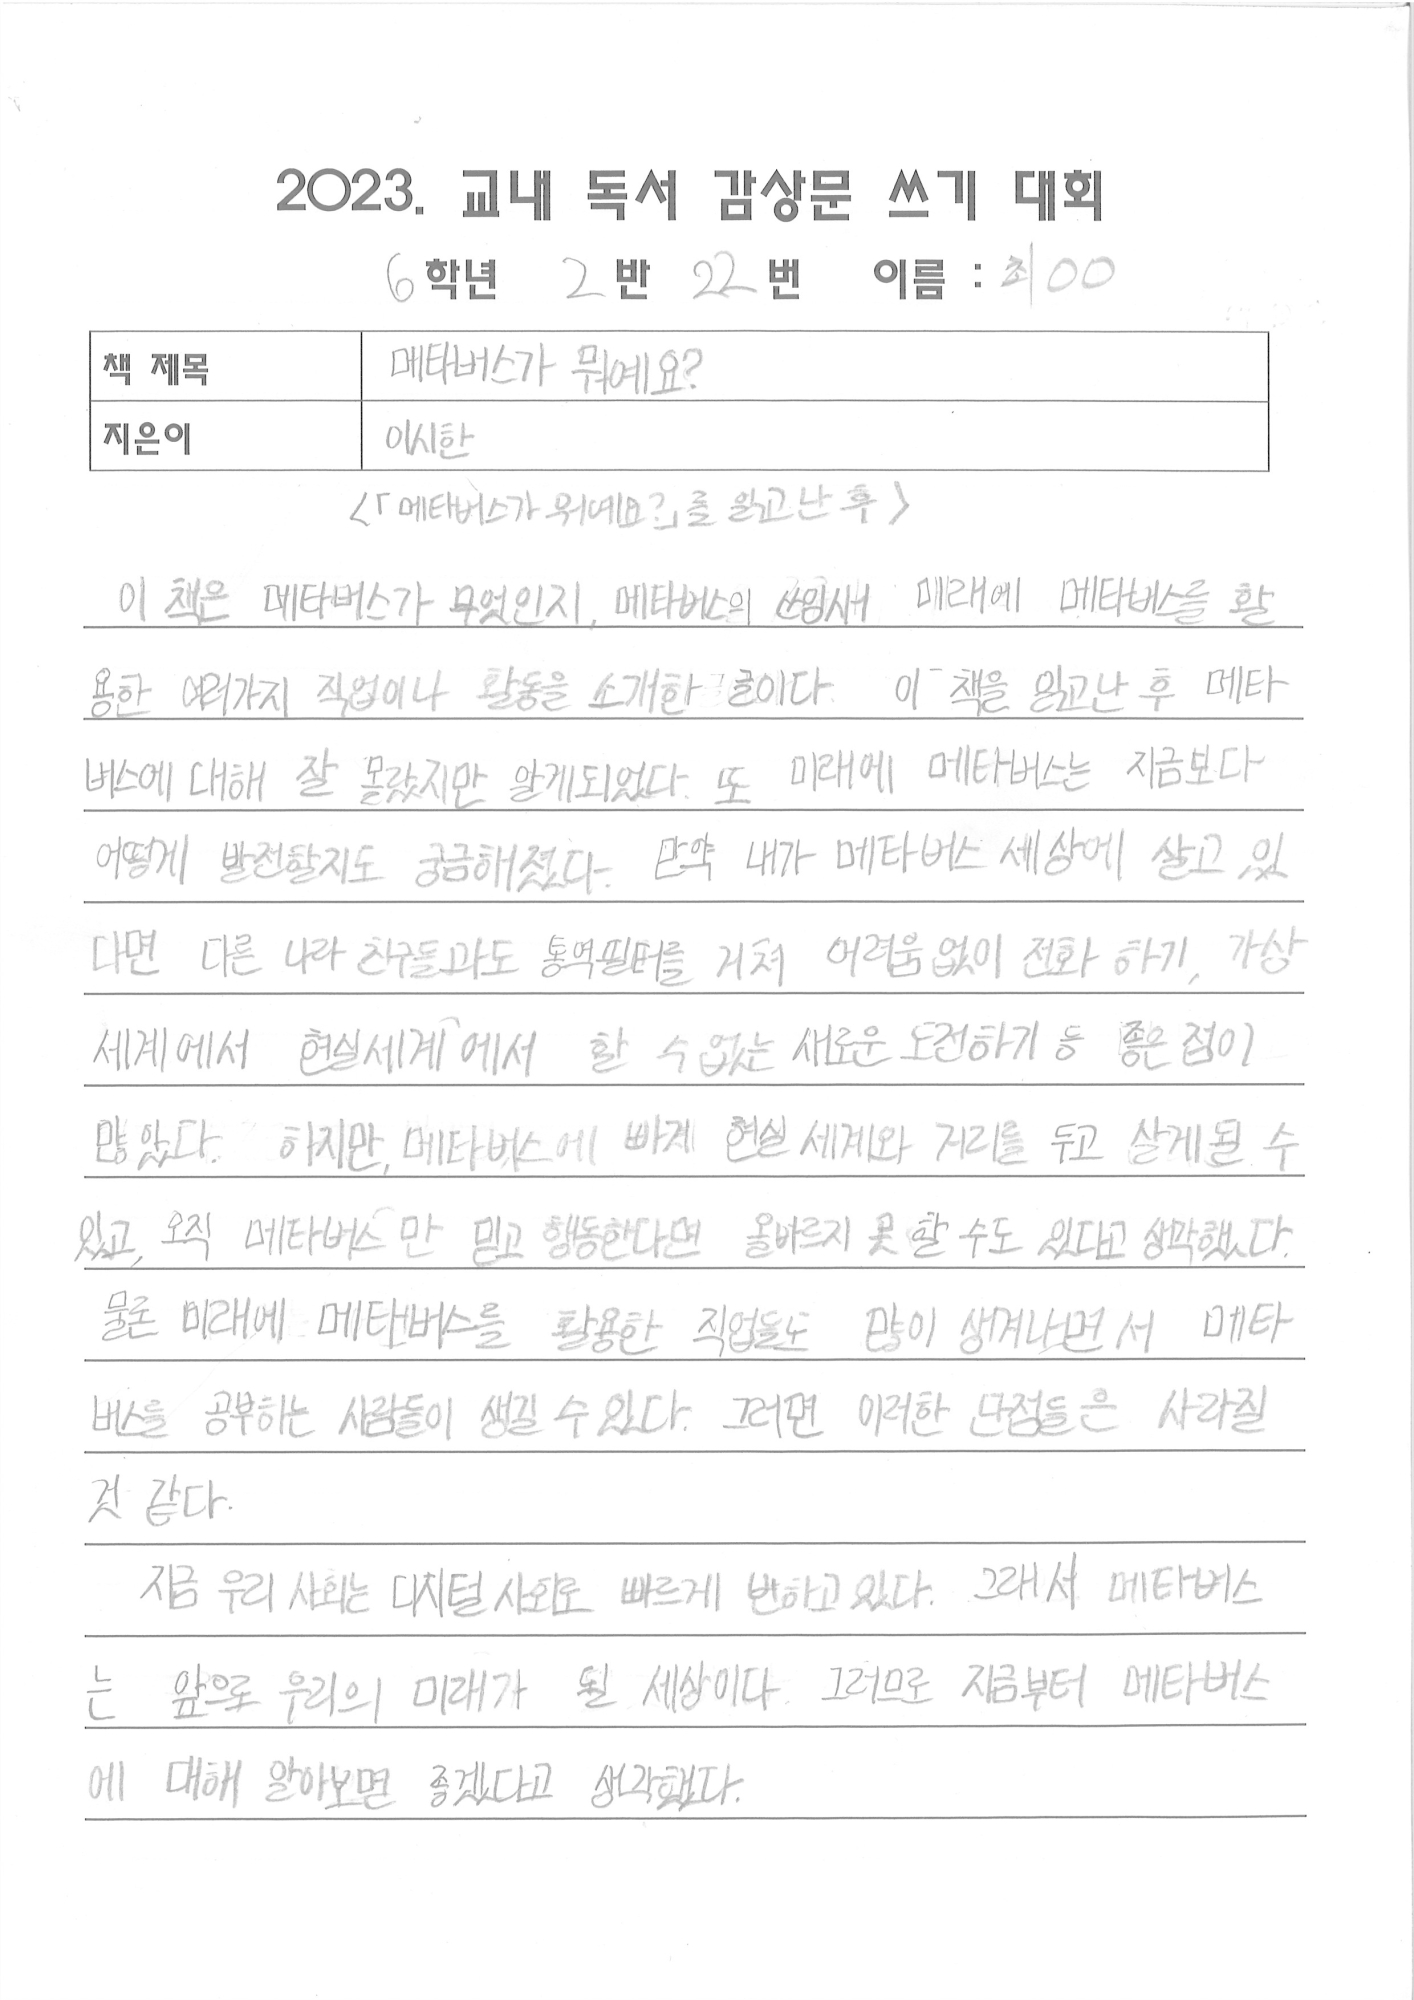 2023. 교내 독서 감상문 쓰기 대회
6학년 2반 22번 이름 : 최OO
책 제목 메타버스가 뭐예요?
지은이 이시한
<「메타버스가 뭐예요?」를 읽고난 후>
이 책은 메타버스가 무엇인지, 메타버스의 쓰임새 미래에 메타버스를 활
용한 여러가지 직업이나 활동을 소개한 글이다. 이 책을 읽고난 후 메타
버스에 대해 잘 몰랐지만 알게되었다. 또 미래에 메타버스는 지금보다
어떻게 발전할지도 궁금해졌다. 만약 내가 메타버스 세상에 살고 있
다면 다른 나라 친구들과도 통역필터를 거쳐 어려움없이 전화 하기, 가상
세계에서 현실세계에서 할 수 없는 새로운 도전하기 등 좋은 점이
많았다. 하지만, 메타버스에 빠져 현실 세계와 거리를 두고 살게 될 수
있고, 오직 메타버스만 믿고 행동한다면 올바르지 못 할 수도 있다고 생각했다.
물론 미래에 메타버스를 활용한 직업들도 많이 생겨나면서 메타
버스를 공부하는 사람들이 생길 수 있다. 그러면 이러한 단점들은 사라질
것 같다.
지금 우리 사회는 디지털 사회로 빠르게 변하고 있다. 그래서 메타버스
는 앞으로 우리의 미래가 될 세상이다. 그러므로 지금부터 메타버스
에 대해 알아보면 좋겠다고 생각했다.